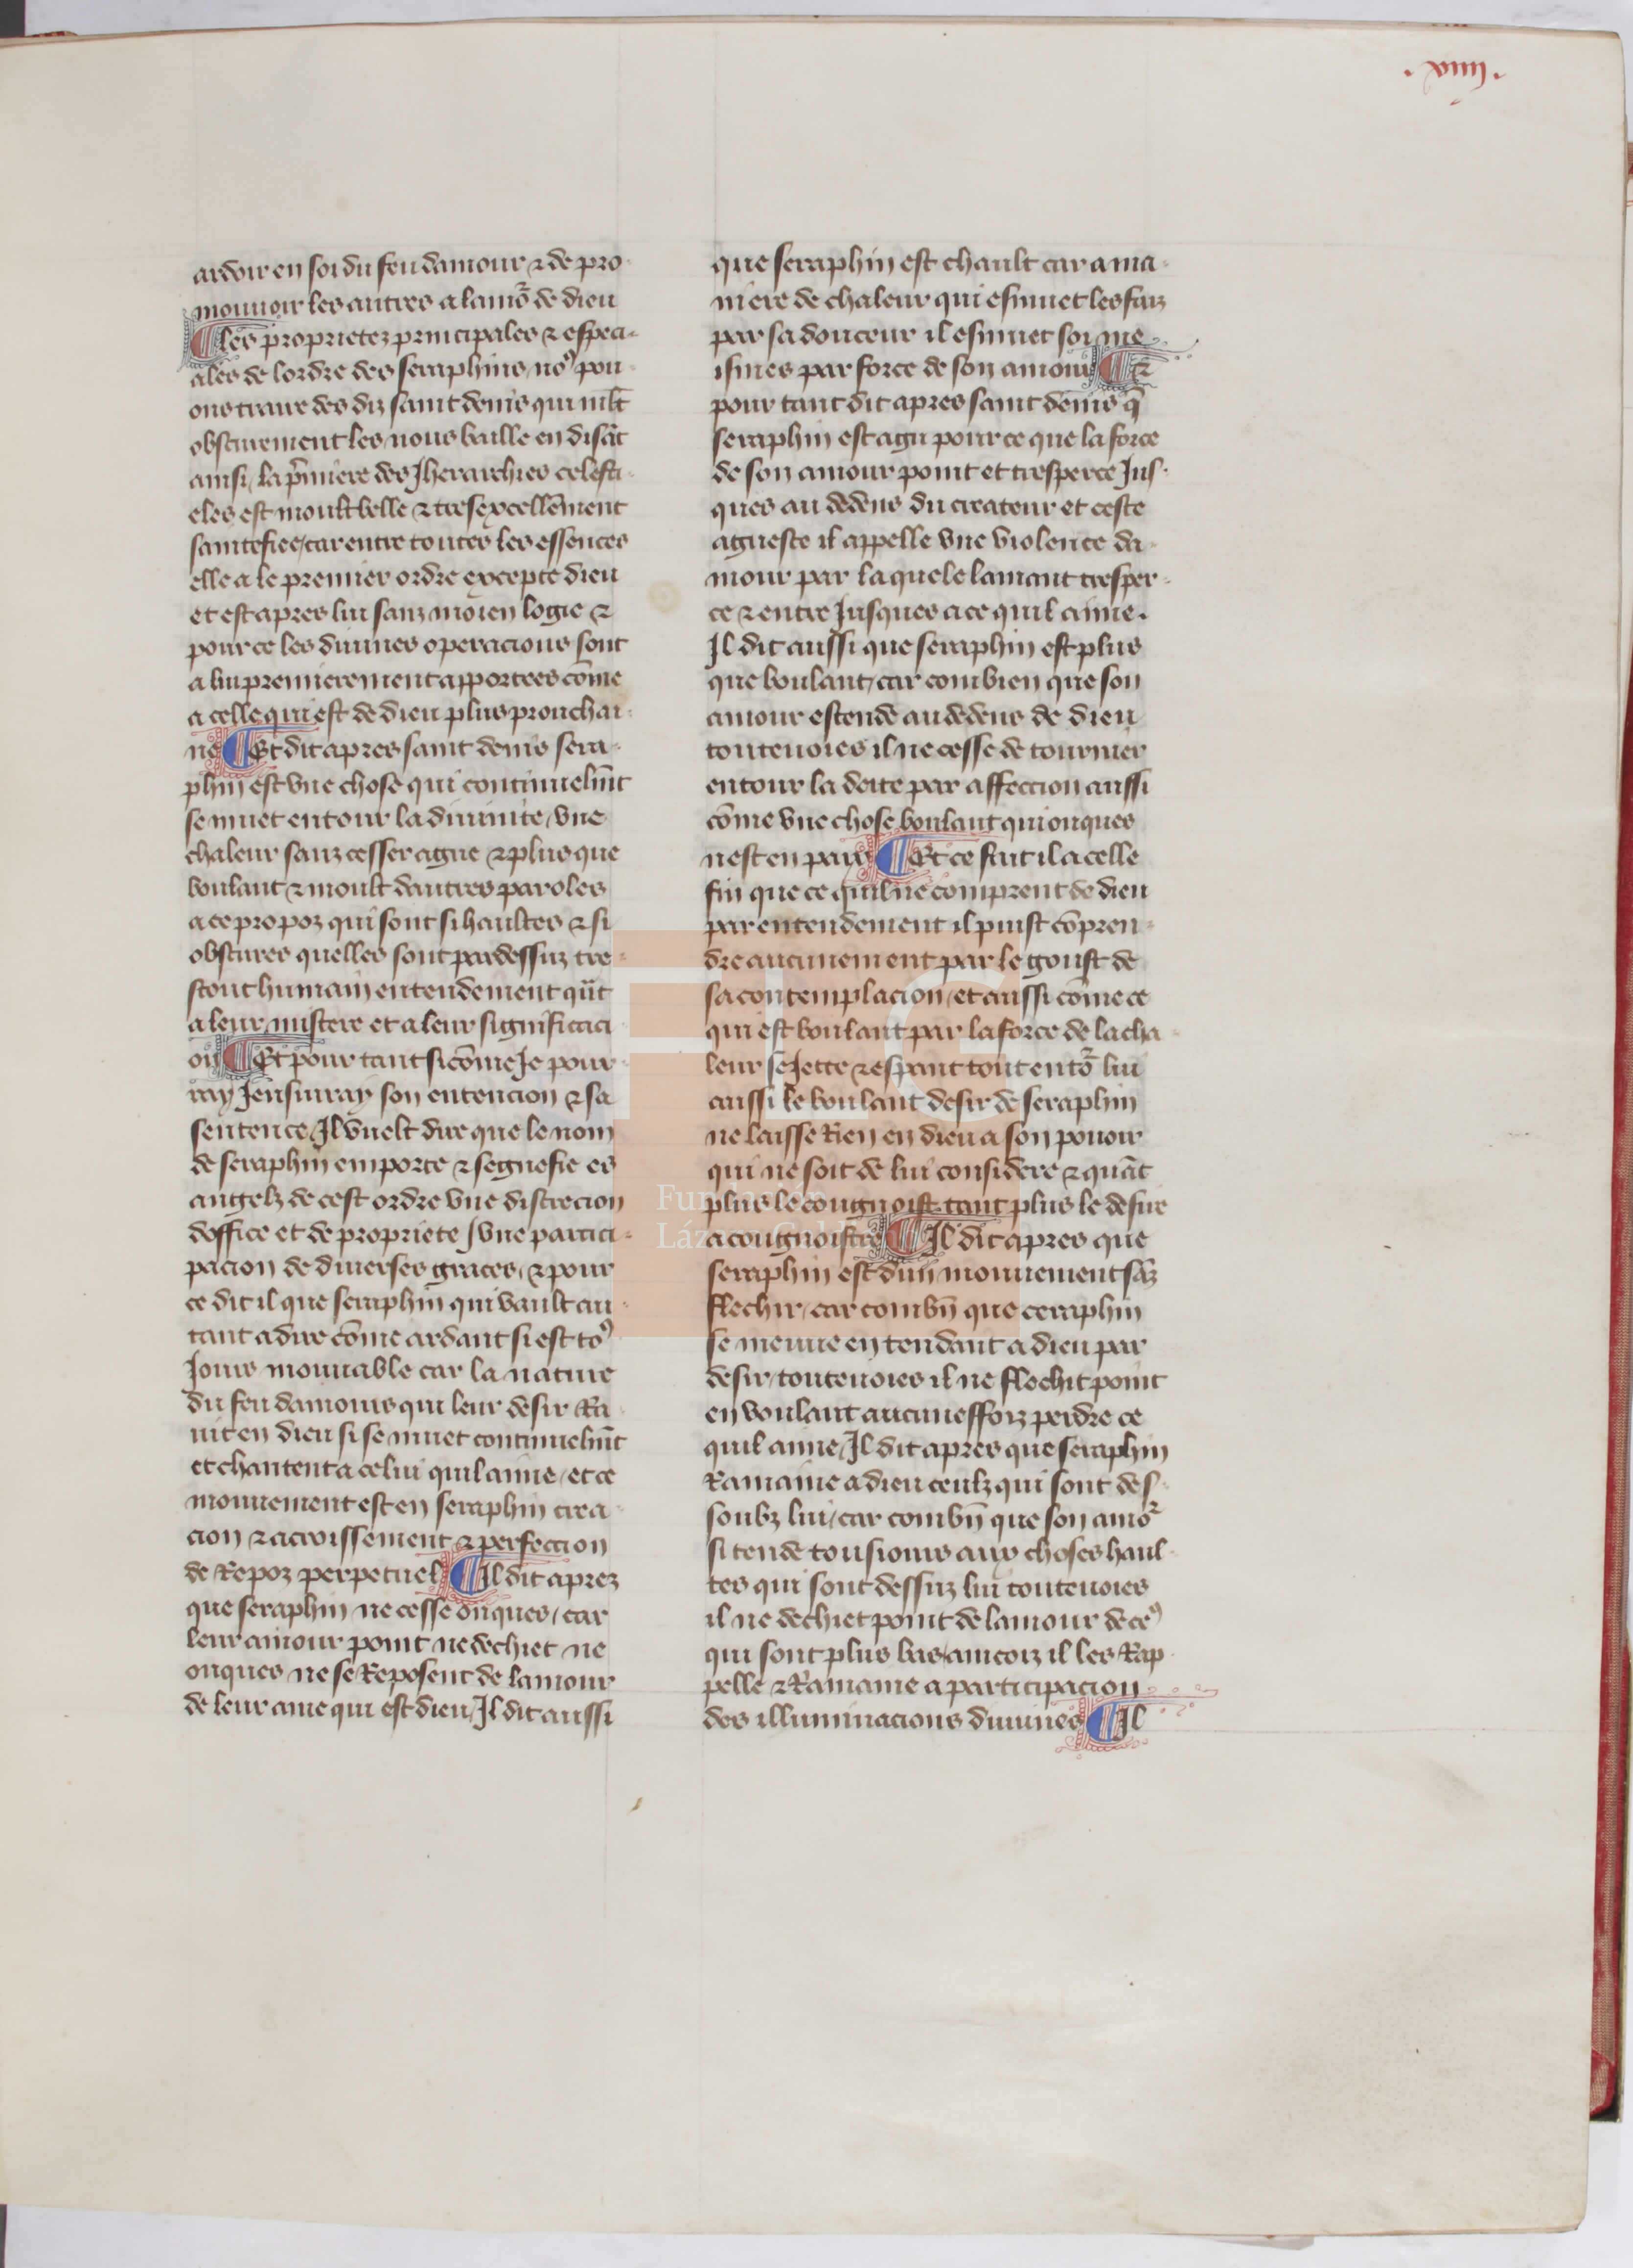 .xviij.
ardoir en soi du feu damour ⁊ de pro-
mouuoir les autres a lamor̃ de dieu
¶ les proprietez principales ⁊ especi-
ales de lordre des seraphins no9 pou-
ons traire des diz saint denis qui mlt̃
obscurement les nous baille en disãt
ainsi la p̃miere des Jherarchies celesti-
eles est moult belle ⁊ tresexcellẽment
saintefiee, car entre toutes les essences
elle a le premier ordre excepte dieu
et est apres lui sanz moien logie ⁊
pour ce les diuines operacions sont
a lui premierement apportees cõme
a celle qui est de dieu plus prouchai-
ne ¶ Et dit apres saint denis sera-
phin est vne chose qui continuelmt̃
se muet entour la diuinite, vne
chaleur sanz cesser ague ⁊ plus que
boulant ⁊ moult dautres paroles
a ce propoz qui sont si haultes ⁊ si
obscures quelles sont pardessuz tre-
stout humain entendement qñt
a leur mistere et a leur significaci-
on ¶ Et pour tant si cõme Je pour-
ray Jensuiuray son entencion ⁊ sa
sentence, Il vuelt dire que le nom
de seraphin emporte ⁊ segnefie es
angelz de cest ordre vne discrecion
doffice et de propriete / vne partici-
pacion de diuerses graces, ⁊ pour
ce dit il que seraphin qui vault au-
tant a dire cõme ardant si est to9
Jours mouuable car la nature
du feu damours qui leur desir Ra-
uit en dieu si se muet continuelmt̃
et chantent a celui quil aime, et ce
mouuement est en seraphin crea-
cion ⁊ acroissement ⁊ perfeccion
de Repoz perpetuel ¶ Il dit aprez
que seraphin ne cesse onques, car
leur amour point ne dechiet ne
onques ne se Reposent de lamour
de leur ame qui est dieu, Il dit aussi
que seraphin est chault car a ma-
niere de chaleur qui esmuet les faiz
par sa douceur il esmuet soi me-
ismes par force de son amour ¶ Et
pour tant dit apres saint denis q̃
seraphin est agu pour ce que la force
de son amour point et tresperce Jus-
ques au dedens du createur et ceste
agueste il appelle vne violence da-
mour par laquele lamant tresper-
ce ⁊ entre Jusques a ce quil aime.
Il dit aussi que seraphin est plus
que boulant, car combien que son
amour estende au dedens de dieu
touteuoies il ne cesse de tournier
entour la deite par affeccion aussi
cõme vne chose boulant qui onques
nest en paix ¶ Et ce fait il a celle
fin que ce quil ne comprent de dieu
par entendement il puist cõpren-
dre aucunement par le goust de
sa contemplacion, et aussi cõme ce
qui est boulant par la force de la cha-
leur se Jette ⁊ espant tout entor̃ lui
aussi le boulant desir de seraphin
ne laisse Rien en dieu a son pouoir
qui ne soit de lui considere ⁊ quãt
plus le cougnoist tant plus le desire
a cougnoistre ¶ Il dit apres que
seraphin est dun mouuement sãz
flechir, car combñ que ceraphin
se meuue en tendant a dieu par
desir, touteuoies il ne flechit point
en voulant aucuneffoiz perdre ce
quil aime, Il dit apres que seraphin
Ramaine a dieu ceulz qui sont des-
soubz lui, car combñ que son amor̃
si tende tousiours aux choses haul-
tes qui sont dessuz lui touteuoies
il ne dechiet point de lamour de ce9
qui sont plus bas, aincoiz il les Rap-
pelle ⁊ Ramaine a participacion
des illuminacions diuines ¶ Il